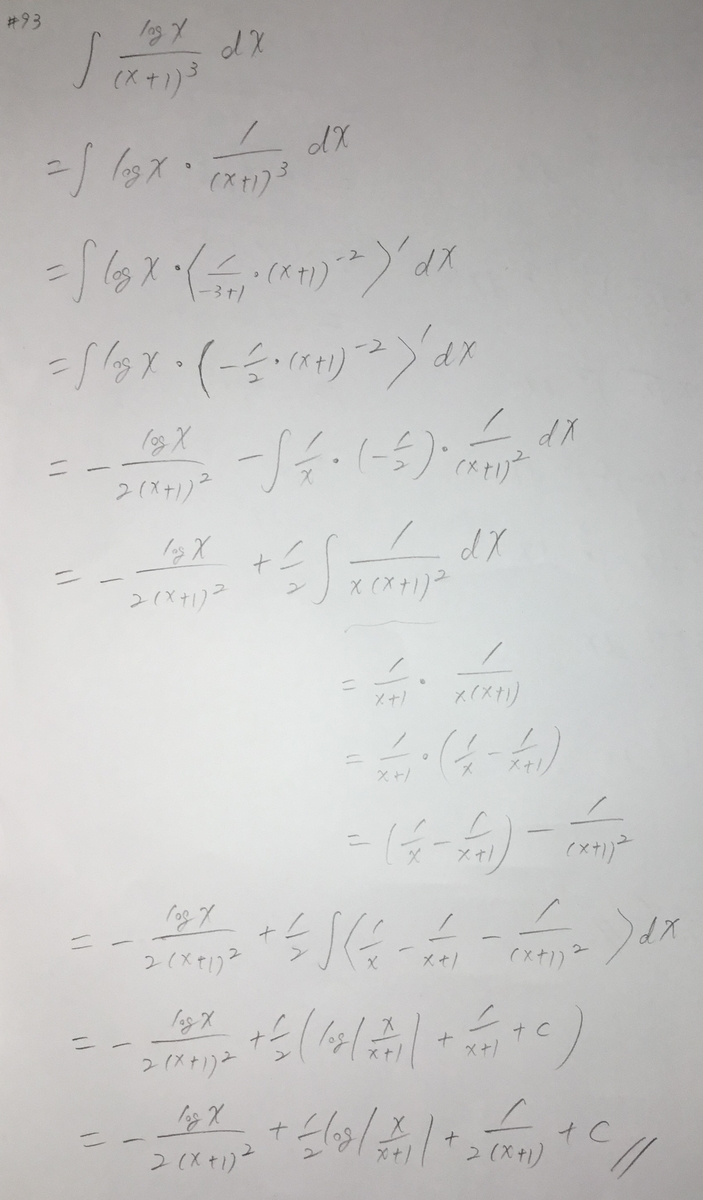 #93
∫ log x / (x+1)^3 dx
= ∫ log x · 1/(x+1)^3 dx
= ∫ log x · (1/(-3+1) · (x+1)^-2)' dx
= ∫ log x · (-1/2 · (x+1)^-2)' dx
= - log x / 2(x+1)^2 - ∫ 1/x · (-1/2) · 1/(x+1)^2 dx
= - log x / 2(x+1)^2 + 1/2 ∫ 1/x(x+1)^2 dx
= 1/(x+1) · 1/x(x+1)
= 1/(x+1) · (1/x - 1/(x+1))
= (1/x - 1/(x+1)) - 1/(x+1)^2
= - log x / 2(x+1)^2 + 1/2 ∫ (1/x - 1/(x+1) - 1/(x+1)^2) dx
= - log x / 2(x+1)^2 + 1/2 (log|x/(x+1)| + 1/(x+1) + C)
= - log x / 2(x+1)^2 + 1/2 log|x/(x+1)| + 1/2(x+1) + C //